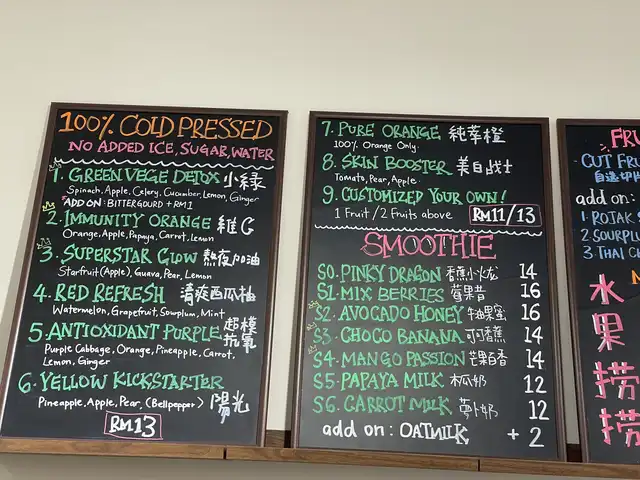 100% COLD PRESSED
NO ADDED ICE, SUGAR, WATER
1. GREEN VEGE DETOX 小綠
Spinach, Apple, Celery, Cucumber, Lemon, Ginger
*ADD ON: BITTERGOURD + RM1
2. IMMUNITY ORANGE 維C
Orange, Apple, Papaya, Carrot, Lemon
3. SUPERSTAR GLOW 熬夜加油
Starfruit (Apple), Guava, Pear, Lemon
4. RED REFRESH 清爽西瓜柚
Watermelon, Grapefruit, Sourplum, Mint
5. ANTIOXIDANT PURPLE 超模抗氧
Purple Cabbage, Orange, Pineapple, Carrot,
Lemon, Ginger
6. YELLOW KICKSTARTER
Pineapple, Apple, Pear, (Bellpepper) 陽光
RM13
7. PURE ORANGE 純萃橙
100% Orange Only.
8. SKIN BOOSTER 美白战士
Tomato, Pear, Apple.
9. CUSTOMIZED YOUR OWN!
1 Fruit / 2 Fruits above RM11/13
SMOOTHIE
S0. PINKY DRAGON 香蕉小火龙 14
S1. MIX BERRIES 莓果昔 16
S2. AVOCADO HONEY 牛油果蜜 16
S3. CHOCO BANANA 可可蕉 14
S4. MANGO PASSION 芒果百香 14
S5. PAPAYA MILK 木瓜奶 12
S6. CARROT MILK 萝卜奶 12
add on: OATMILK + 2
FRU
CUT FRU
自選切片
add on:
1. ROJAK
2. SOURPLU
3. THAI C
水果捞捞